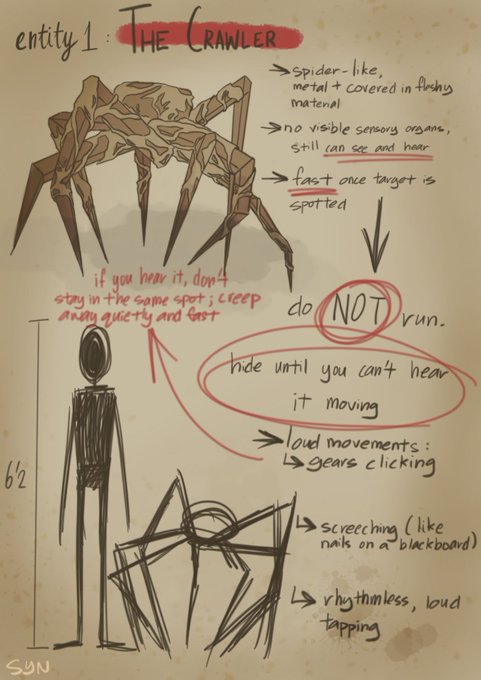 entity 1: THE CRAWLER
→ spider-like,
metal + covered in fleshy
material
→ no visible sensory organs,
still can see and hear
→ fast once target is
spotted
do NOT run.
hide until you can't hear
it moving
if you hear it, don't
stay in the same spot; creep
away quietly and fast
→ loud movements:
↳ gears clicking
↳ screeching (like
nails on a blackboard)
↳ rhythmless, loud
tapping
6'2
SYN